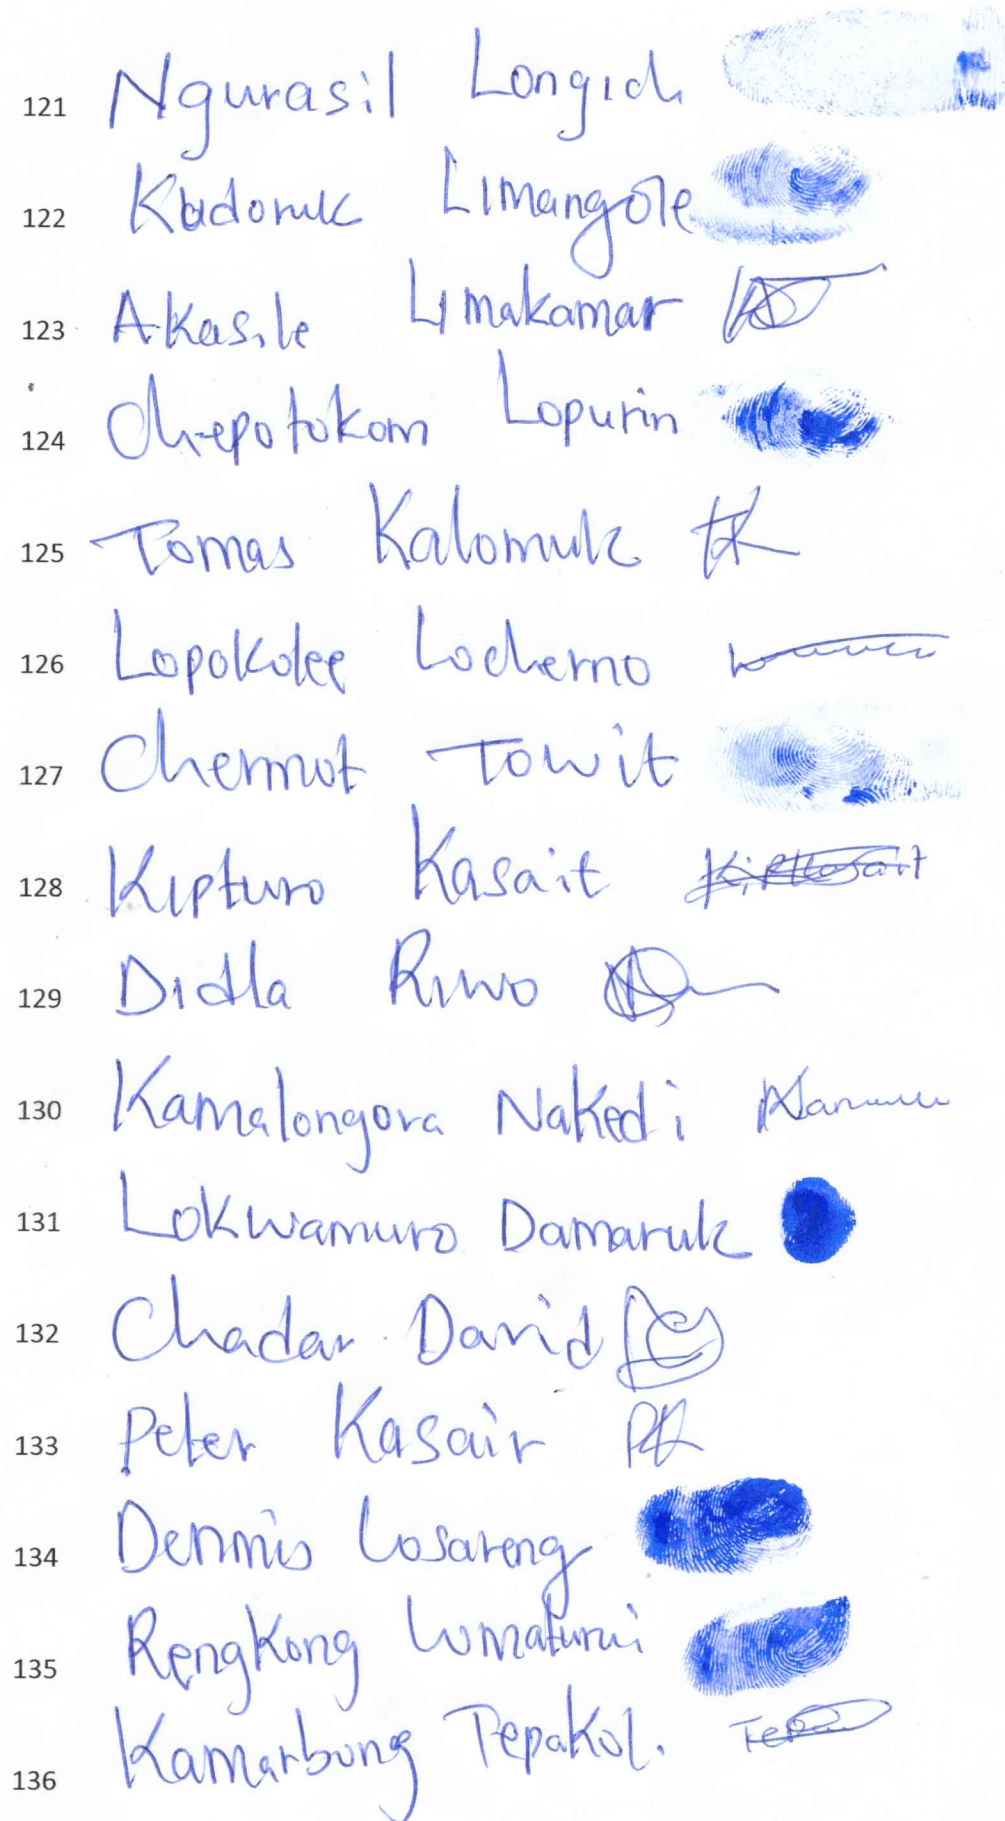 121 Ngurasil Longich
122 Kadoruk Limangole
123 Akasile Limakamar
124 Chepotokom Lopurin
125 Tomas Kalomuk TK
126 Lopokolee Lochemo
127 Chermot Towit
128 Kipturo Kasait Kipkasait
129 Didla Riwo
130 Kamalongora Nakedi
131 Lokwamuro Damaruk
132 Chadar David
133 Peter Kasair PK
134 Dennis Losareng
135 Rengkong
136 Kamarbong Tepakol.